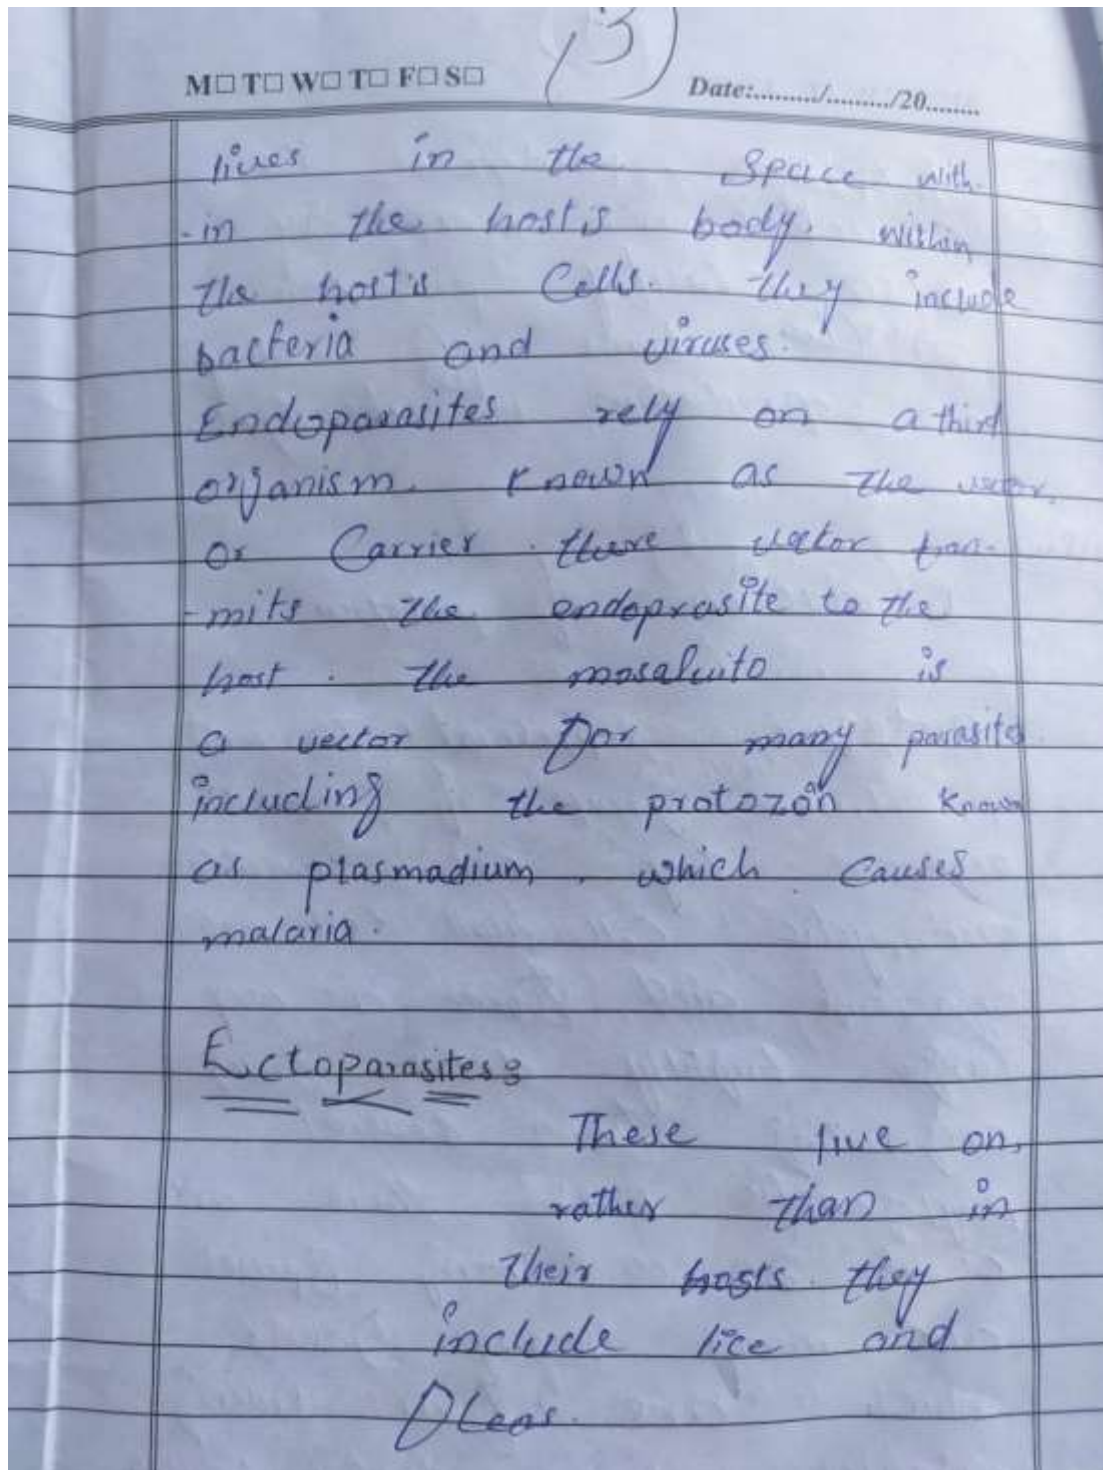 (3)
M□ T□ W□ T□ F□ S□
Date:........./........./20........
lives in the space with-
-in the host's body. within
the host's Cells. they include
bacteria and viruses.
Endoparasites rely on a third
organism. Known as the vector.
or Carrier. there vector tran-
-mits the endoprasite to the
host. the mosaluito is
a vector for many parasites
including the protozon known
as plasmadium. which causes
malaria.
Ectoparasites:
These live on,
rather than in
their hosts. they
include lice and
fleas.